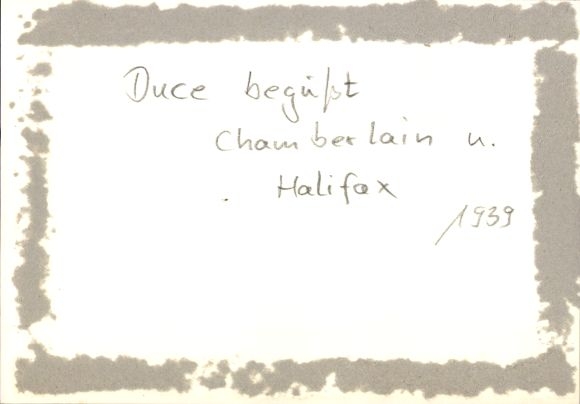 Duce begüßt
Chamberlain u.
Halifax
1939